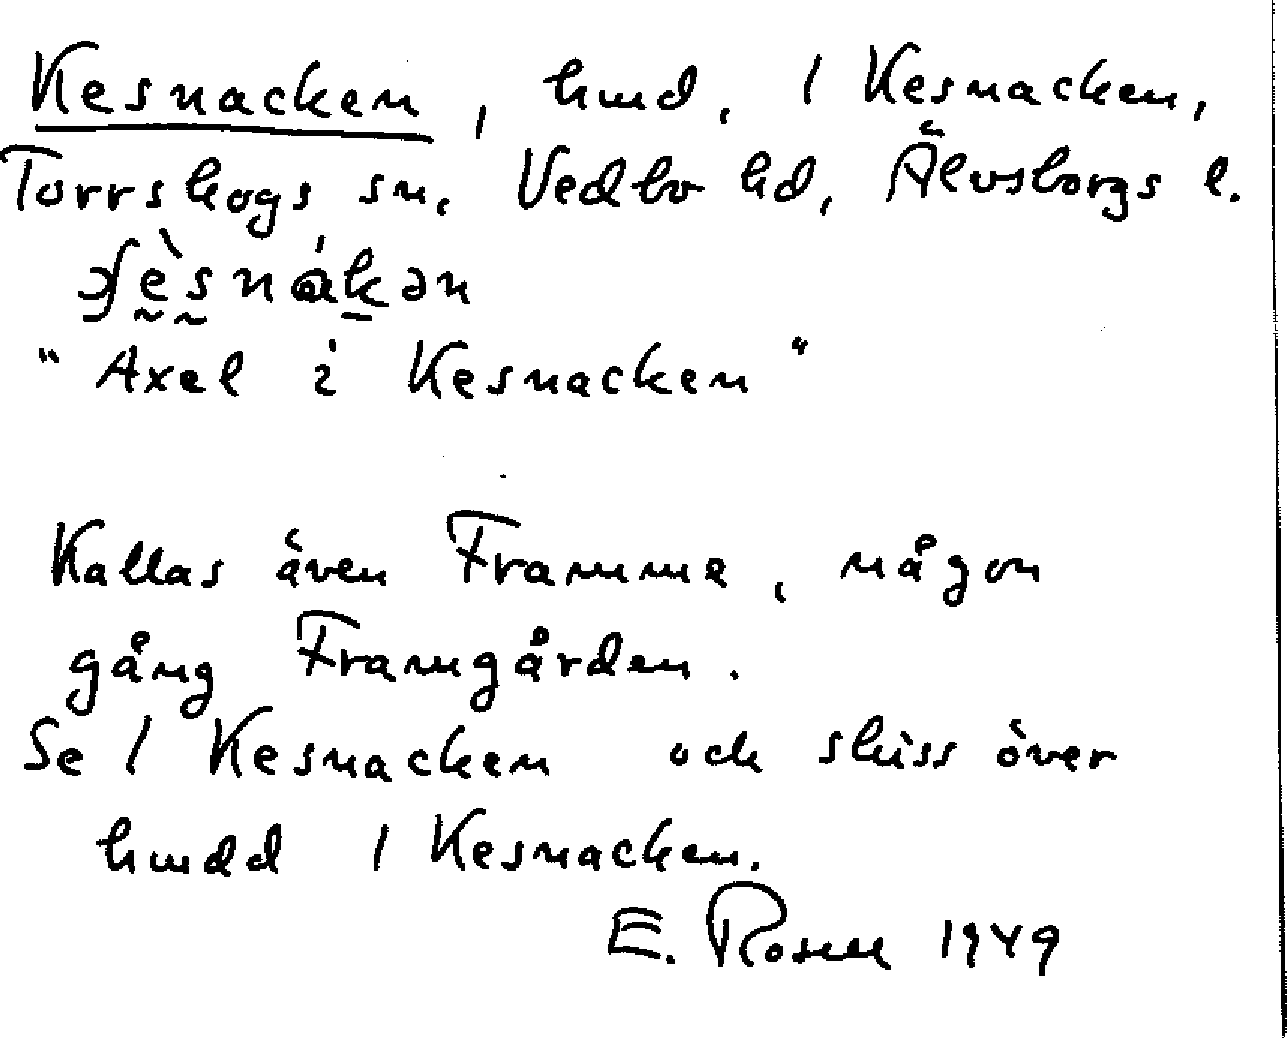 Kesnacken, hmd, 1 Kesnacken,
Torrskogs sn, Vedbo hd, Älvsborgs l.
"Axel i Kesnacken"
Kallas även Framme, någon
gång Framgården.
Se 1 Kesnacken och skiss över
hmdd 1 Kesnacken.
E. Rosen 1949